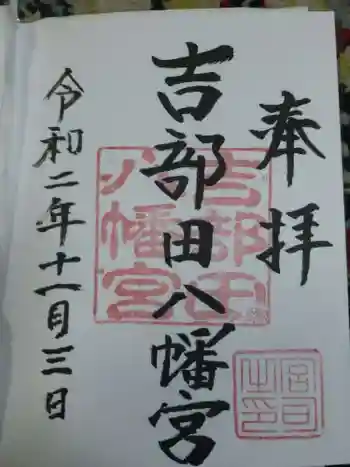 奉拝
吉部田八幡宮
令和二年十一月三日
吉部田
八幡宮
宮司
之印